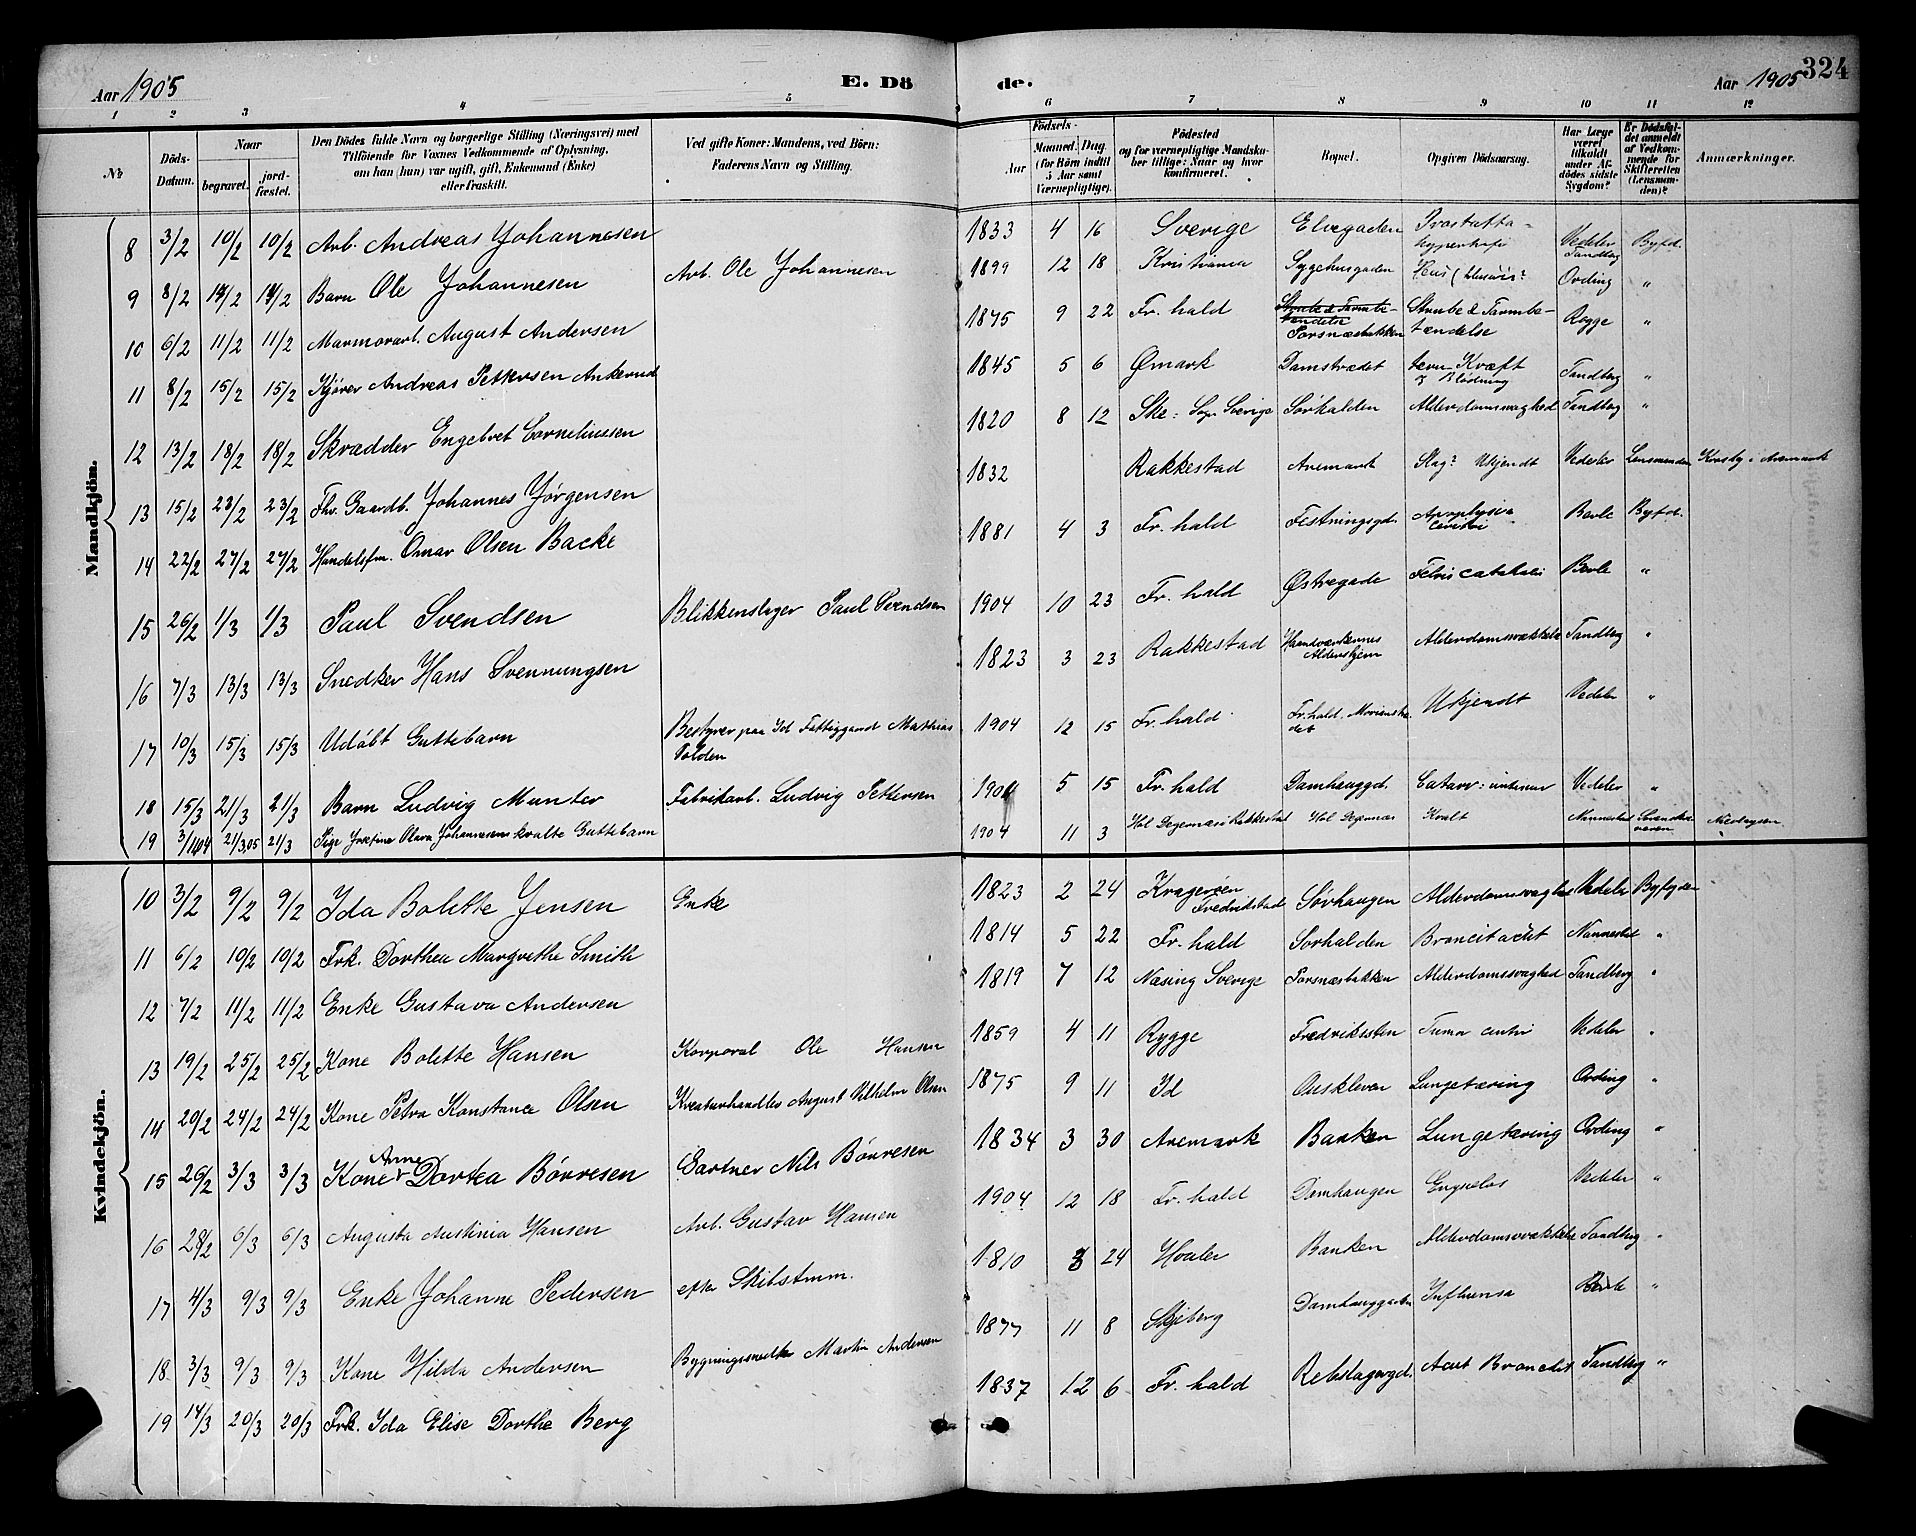 Aar 1905
E. Dö
de.
Aar 1905
324
1 2 3 4 5
6 7 8 9 10 11 12
No
Döds-Datum.
Naar
begravet.
jord-fæstet.
Den Dödes fulde Navn og borgerlige Stilling (Næringsvei) med
Tilföiende for Voxnes Vedkommende af Oplysning,
om han (hun) var ugift, gift, Enkemand (Enke)
eller fraskilt.
Ved gifte Koner: Mandens, ved Börn:
Faderens Navn og Stilling.
Födsels-
Aar
Maaned. Dag
(for Börn indtil
5 Aar samt
Værnepligtige).
Födested
og for værnepligtige Mandskaber tillige: Naar og hvor
konfirmeret.
Bopæl.
Opgiven Dödsaarsag.
Har Læge
været
tilkaldt
under Afdödes sidste
Sygdom?
Er Dödsfaldet anmeldt
af Vedkommende for
Skifteretten
(Lensmanden)?
Anmærkninger.
Mandkjön.
8 3/2 10/2 10/2 Arb. Andreas Johannesen 1833 4 16 Sverige Elvegaden Prostatta-hypertrofi Vedeler Byfd.
9 8/2 14/2 14/2 Barn Ole Johannesen Arb. Ole Johannesen 1899 12 18 Kristiania Sygehusgaden Ording "
10 6/2 11/2 11/2 Marmorarb. August Andersen 1875 9 22 Fr. hald Porsnæsbakken Strube & Tarmbetændelse Rogge "
11 8/2 15/2 15/2 Kjører Andreas Pettersen Ankerud 1845 5 6 Ømark Damstrædet Kræft & Blødning Tandberg "
12 13/2 18/2 18/2 Skrædder Engebret Corneliussen 1820 8 12 Ske: Sogn Sverige Sørhalden Alderdomssvaghed Tandberg "
13 15/2 23/2 23/2 Fhv. Gaardb. Johannes Jørgensen 1832 Rakkestad Aremark Slag? Ukjendt Vedeler Lensmanden Korsby i Aremark
14 22/2 27/2 27/2 Handelsfm. Omar Olsen Backe 1881 4 3 Fr. hald Festningsgd. Apoplysia cerebri Berle Byfd.
15 26/2 1/3 1/3 Paul Svendsen Blikkenslager Paul Svendsen 1904 10 23 Fr. hald Østregade Berle "
16 7/3 13/3 13/3 Snedker Hans Svennungsen 1823 3 23 Rakkestad Haandværkernes Aldershjem Alderdomssvækkelse Tandberg "
17 10/3 15/3 15/3 Udøbt Guttebarn Bestyrer paa Id Fattiggaard Matthias Volden 1904 12 15 Fr. hald Fr. hald. Ukjendt Vedeler "
18 15/3 21/3 21/3 Barn Ludvig Munter Fabrikarb. Ludvig Pettersen 1904 5 15 Fr. hald Damhauggd. Vedeler "
19 3/11 04 21/3 05 21/3 Pige Josefine Olava Johannesens kvalte Guttebarn 1904 11 3 Degernæs i Rakkestad Degernæs Kvalt Nannestad
Kvindekjön.
10 3/2 9/2 9/2 Ida Bolette Jensen Enke 1823 2 24 Kragerøen Fredrikstad Sørhaugen Alderdomssvaghed Vedeler Byfogden
11 6/2 10/2 10/2 Frk. Dorthea Margrethe Smith 1814 5 22 Fr. hald Sørhalden Nannestad "
12 7/2 11/2 11/2 Enke Gustava Andersen 1819 7 12 Næsing Sverige Porsnæsbakken Alderdomssvaghed Tandberg "
13 19/2 25/2 25/2 Kone Bolette Hansen Korporal Ole Hansen 1859 4 11 Rygge Fredriksten Vedeler "
14 20/2 24/2 24/2 Kone Petra Konstance Olsen Kreaturhandler August Vilhelm Olsen 1875 9 11 Id Ouskleven Lungetæring Ording "
15 26/2 3/3 3/3 Kone Anne Dortea Børresen Gartner Nils Børresen 1834 3 30 Aremark Banken Lungetæring Ording "
16 28/2 6/3 6/3 Augusta Austinia Hansen Arb. Gustav Hansen 1904 12 18 Fr. hald Damhaugen Vedeler "
17 4/3 9/3 9/3 Enke Johanne Pedersen efter Skibstmm. 1810 3 24 Hvaler Banken Alderdomssvækkelse Tandberg "
18 3/3 9/3 9/3 Kone Hilda Andersen Bygningssnedker Martin Andersen 1877 11 8 Skjeberg Damhauggaden Influensa Berle "
19 14/3 20/3 20/3 Frk. Ida Elise Dorthe Berg 1837 12 6 Fr. hald Rebslagergd. Acut Bronchit Tandberg "